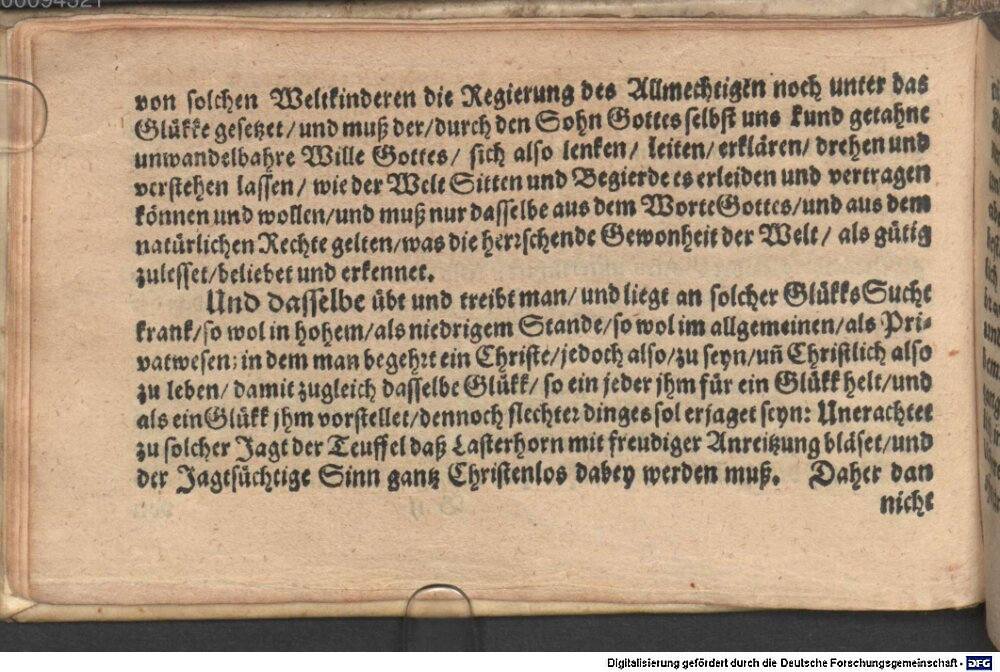 von solchen Weltkinderen die Regierung des Allmechtigen noch unter das
Glükke gesetzet/und muß der/durch den Sohn Gottes selbst uns kund getahne
unwandelbahre Wille Gottes/ sich also lenken/ leiten/ erklären/ drehen und
verstehen lassen/ wie der Welt Sitten und Begierde es erleiden und vertragen
können und wollen/und muß nur dasselbe aus dem Worte Gottes/und aus dem
natürlichen Rechte gelten/was die herrschende Gewonheit der Welt/ als gütig
zulesset/beliebet und erkennet.
Und dasselbe übt und treibt man/ und liegt an solcher Glükks Sucht
krank/so wol in hohem/als niedrigem Stande/so wol im allgemeinen/als Pri-
vatwesen; in dem man begehrt ein Christe/jedoch also/zu seyn/uñ Christlich also
zu leben/ damit zugleich dasselbe Glükk/ so ein jeder jhm für ein Glükk helt/und
als ein Glükk jhm vorstellet/dennoch slechter dinges sol erjaget seyn: Unerachtet
zu solcher Jagt der Teuffel daß Lasterhorn mit freudiger Anreitzung bläset/und
der Jagtsüchtige Sinn gantz Christenlos dabey werden muß. Daher dan
nicht
Digitalisierung gefördert durch die Deutsche Forschungsgemeinschaft - DFG